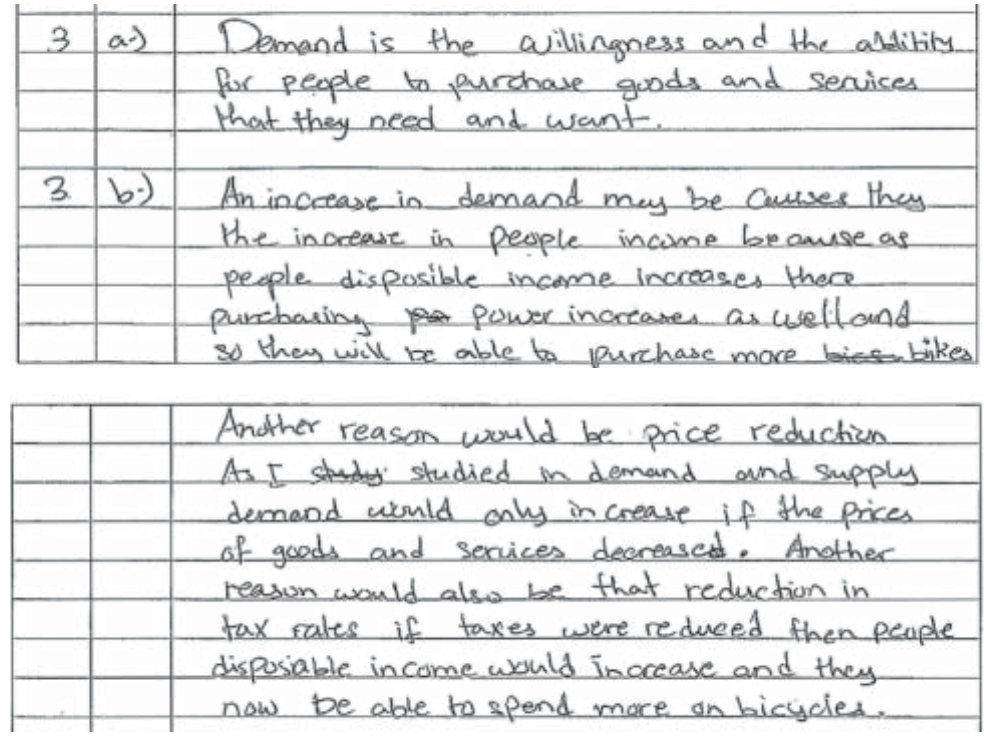 3 a-) Demand is the willingness and the abditity
for people to purchase goods and services
that they need and want.
3 b-) An increase in demand may be causes they
the increase in people income because as
people disposible income increases there
purchasing power increases as well and
so they will be able to purchase more bikes
Another reason would be price reduction
As I study studied in demand and supply
demand would only increase if the prices
of goods and services decreased. Another
reason would also be that reduction in
tax rates if taxes were reduced then people
disposiable income would increase and they
now be able to spend more on bicycles.